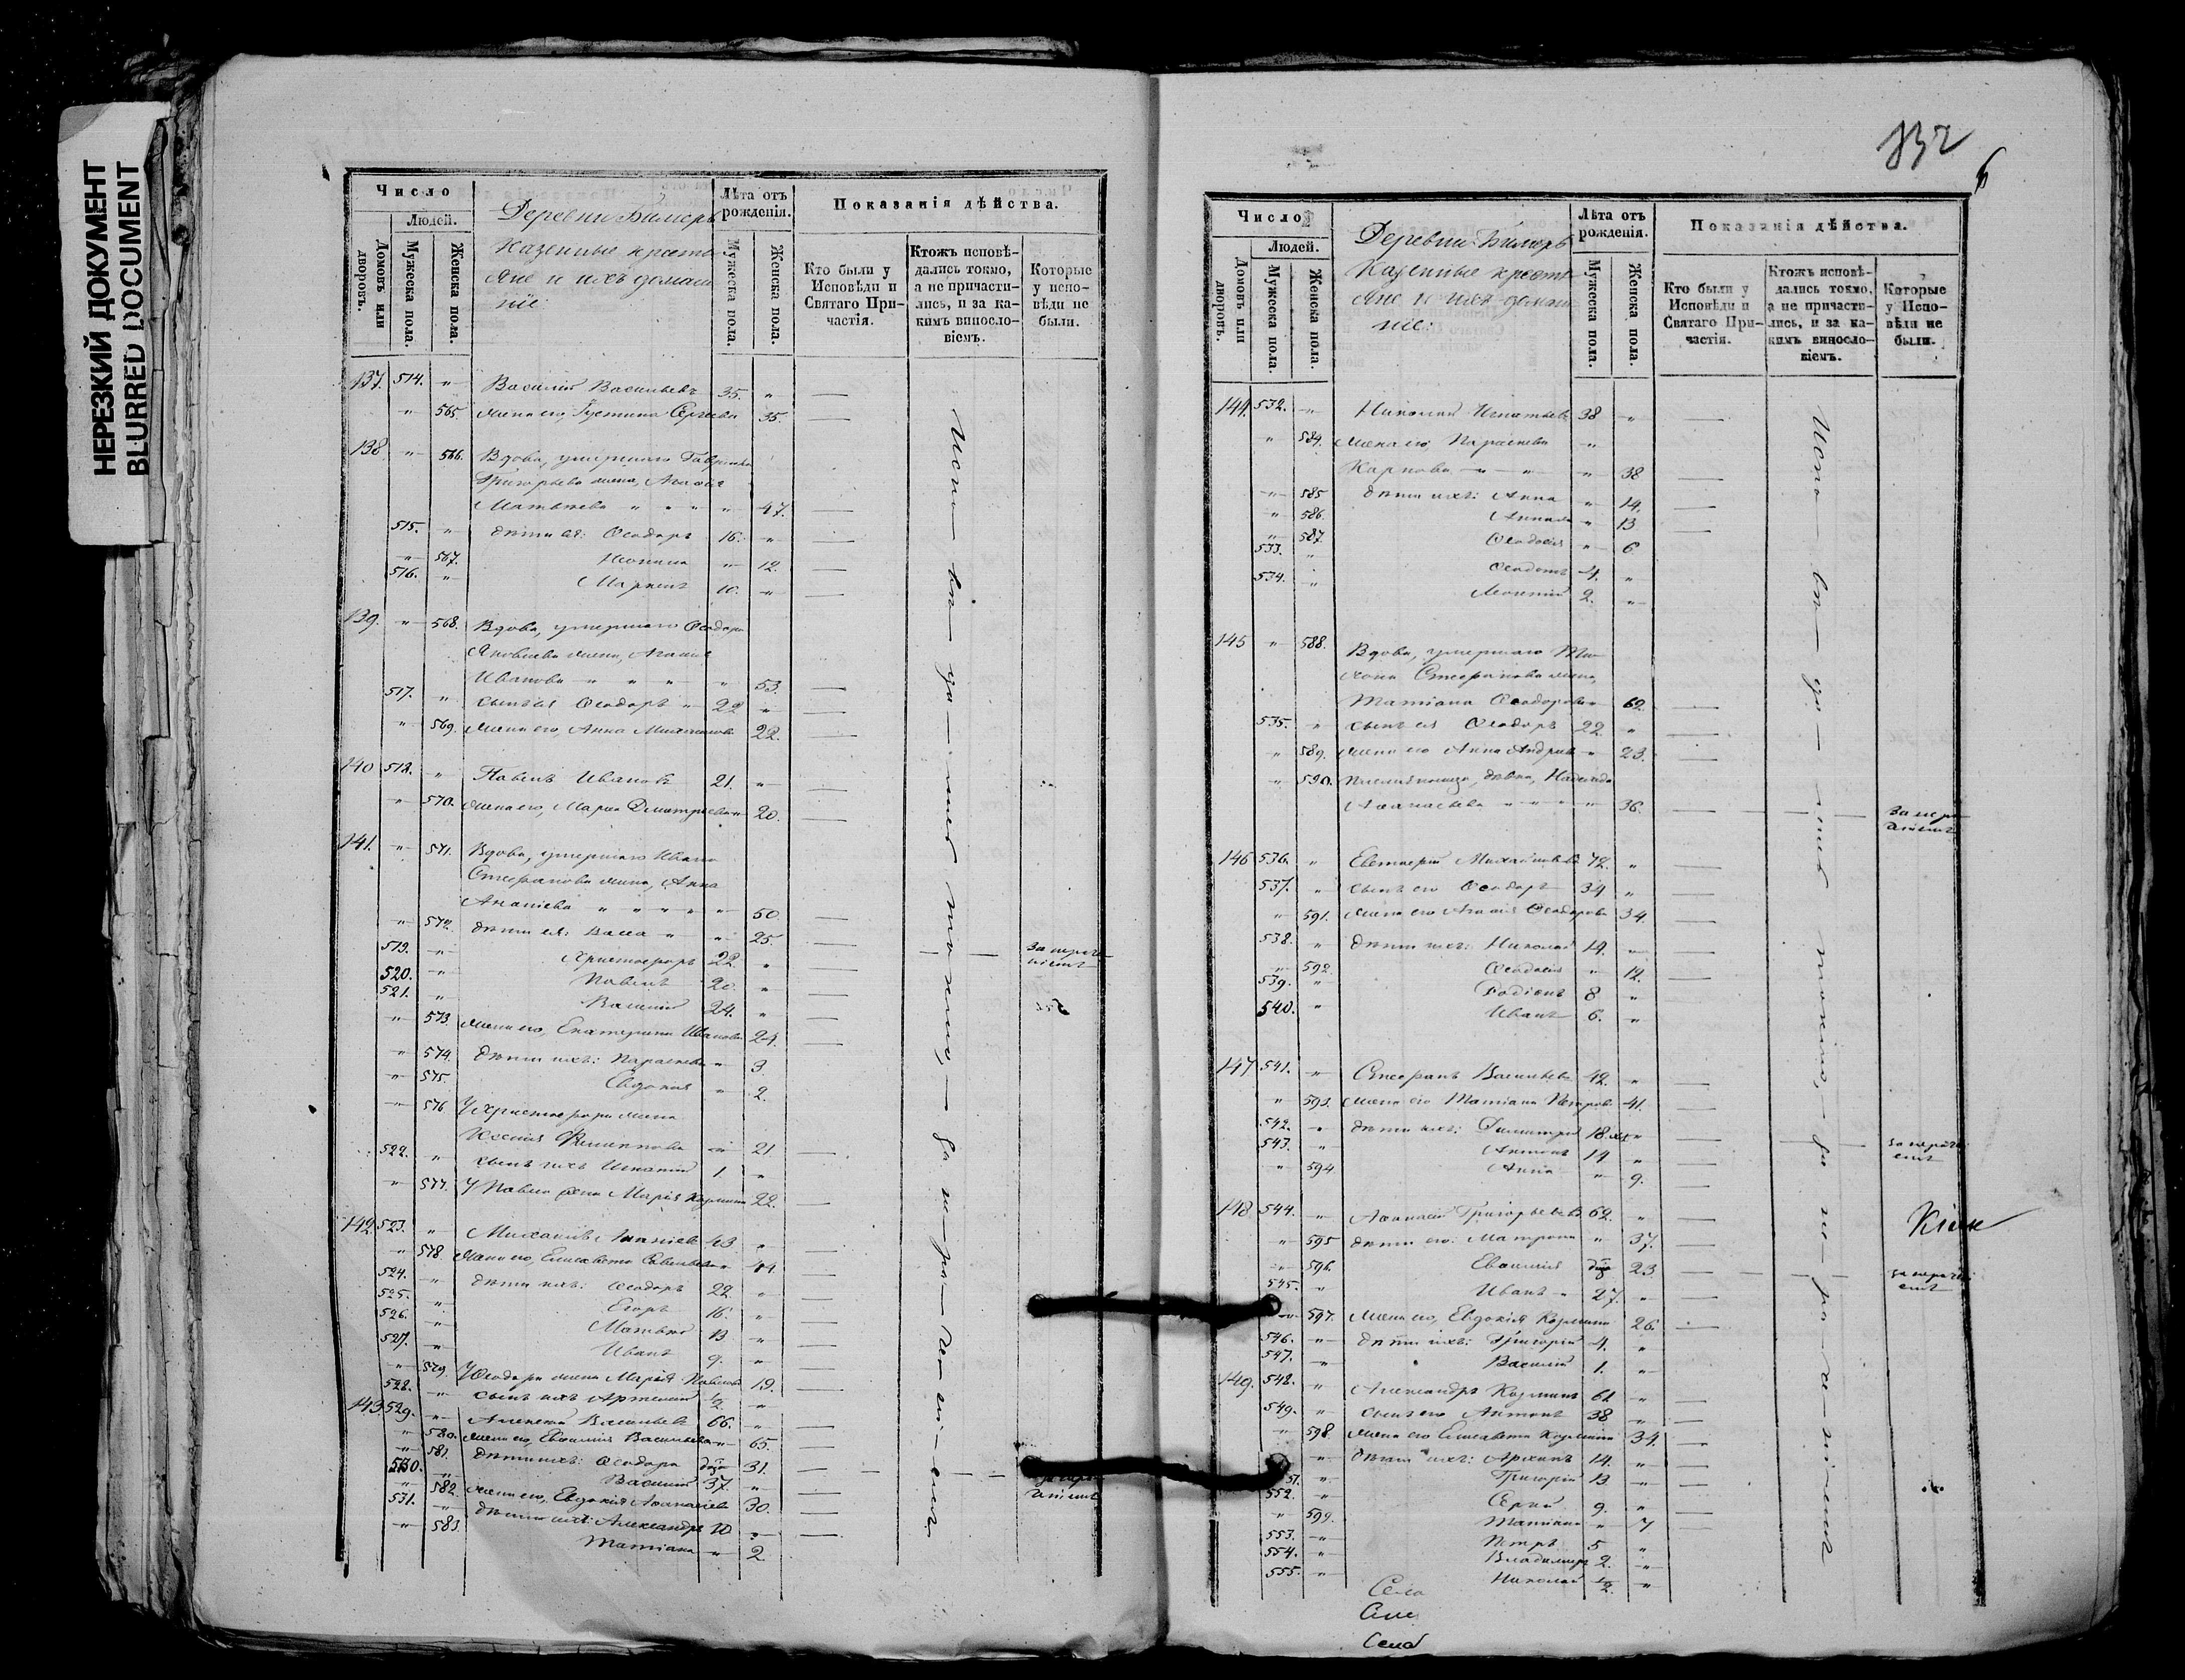 НЕРЕЗКИЙ ДОКУМЕНТ
BLURRED DOCUMENT
Число
Людей.
Домовъ или дворовъ.
Мужеска пола.
Женска пола.
Деревни Бимеръ
Казенные кресть
яне и ихъ домаш
ніе
Лѣта отъ рожденія.
Мужеска пола.
Женска пола.
Показанія дѣйства.
Кто были у Исповѣди и Святаго Причастія.
Ктожъ исповѣдались токмо, а не причастились, и за какимъ винословіемъ.
Которые у исповѣди не были.
137. 514. " Василій Васильевъ 35. "
" 565. жена его, Іустина Сергеева 35.
138. " 566. Вдова, умершаго Гавріила
Григорьева жена, Агафія
Матвѣева " " " " 47.
515. " дѣти ея: Ѳеодоръ 16. "
" 567. Нонна " 12.
516. " Маркелъ 10. "
139. " 568. Вдова, умершаго Ѳеодора
Яковлева жена, Агафія
Иванова " " " " 53.
517. " сынъ ея Ѳеодоръ " 22 "
" 569. жена его, Анна Михайлова 22.
140 518. " Павелъ Ивановъ 21. "
" 570. жена его, Марія Димитріева " 20.
141. " 571. Вдова, умершаго Ивана
Стефанова жена, Анна
Ананіева " " " " " 50.
" 572. дѣти ея: Васса " " 25.
519. " Христофоръ 22. "
520. " Павелъ 20. "
521. " Василій 24. "
" 573. жена его, Екатерина Иванова 24.
" 574. дѣти ихъ: Параскева " 3
" 575. Евдокія " 2.
" 576 У Христофора жена
Ксенія Филиппова " 21
522. " сынъ ихъ Игнатій 1. "
" 577. У Павла жена Марія Козмина 22.
142 523. " Михаилъ Ананіевъ 43. "
" 578 жена его, Елисавета Савельева " 44.
524. " дѣти ихъ: Ѳеодоръ 22. "
525. " Егоръ 16. "
526. " Матвѣй 13 "
527. " Иванъ 9. "
" 579. У Ѳеодора жена Марія Павлова 19.
528. " сынъ ихъ Артемій ½ "
143 529. " Алексѣй Васильевъ 66. "
" 580. жена его, Евфимія Васильева " 65.
" 581. дѣти ихъ: Ѳеодора 31.
530. " Василій 37. "
" 582. жена его, Евдокія Аѳанасіева 30.
531. " дѣти ихъ: Александръ 10 "
" 583 Татіана " 2.
Испо — вѣ — да — лись токмо, — за не — ра — че — ні — емъ.
За нераченіемъ
132
Число
Людей.
Домовъ или дворовъ.
Мужеска пола.
Женска пола.
Деревни Бимеръ
Казенные кресть
яне и ихъ домаш
ніе:
Лѣта отъ рожденія.
Мужеска пола.
Женска пола.
Показанія дѣйства.
Кто были у Исповѣди и Святаго Причастія.
Ктожъ исповѣдались токмо, а не причастились, и за какимъ винословіемъ.
Которые у Исповѣди не были.
144. 532. " Николай Игнатьевъ 38 "
" 584. жена его, Параскева "
Карпова " " " 38
" 585 дѣти ихъ: Анна " 14.
" 586. " 13
" 587. Ѳеодосія " 6
533. " Ѳеодотъ 4. "
534. " Леонтій 2. "
145 " 588. Вдова, умершаго Ти-
хона Стефанова жена,
Татіана Ѳеодорова " 62.
535. " сынъ ея Ѳеодоръ 22. "
" 589. жена его Анна Андреева " 23.
" 590. племянница, дѣвка, Надежда
Аѳанасьева " " " " 36.
За нера
146 536. " Евстафій Михайловъ 72. "
537. " сынъ его Ѳеодоръ 34 "
" 591. жена его Агафія Ѳеодорова 34.
538. " дѣти ихъ: Николай 14. "
" 592. Ѳеодосія " 12.
539. " Родіонъ 8 "
540. " Иванъ 6. "
147 541. " Стефанъ Васильевъ 42. "
" 593. жена его Татіана Петрова 41.
542. " дѣти ихъ: Димитрій 18. "
543. " Антонъ 14 "
" 594 Анна " 9.
148 544. " Аѳанасій Григорьевъ 62. "
" 595 дѣти его: Матрона " 37.
" 596. Евфимія 23
545. " Иванъ " 27. "
" 597. жена его, Евдокія Козмина 26.
546. " дѣти ихъ: Григорій 4. "
547. " Василій 1. "
149. 548. " Александръ Козминъ 61 "
549. " сынъ его Антонъ 38 "
" 598. жена его Елисавета Козмина 34.
" дѣти ихъ: Архипъ 14. "
51. " Григорій 13 "
552. " Сергій 9. "
" 599. Татіана " 7
553. " Петръ 5 "
554. " Владиміръ 2. "
555. " Николай ½ "
Испо — вѣ — да — лись токмо, — за не — ра — че — ні — емъ
Села
Села